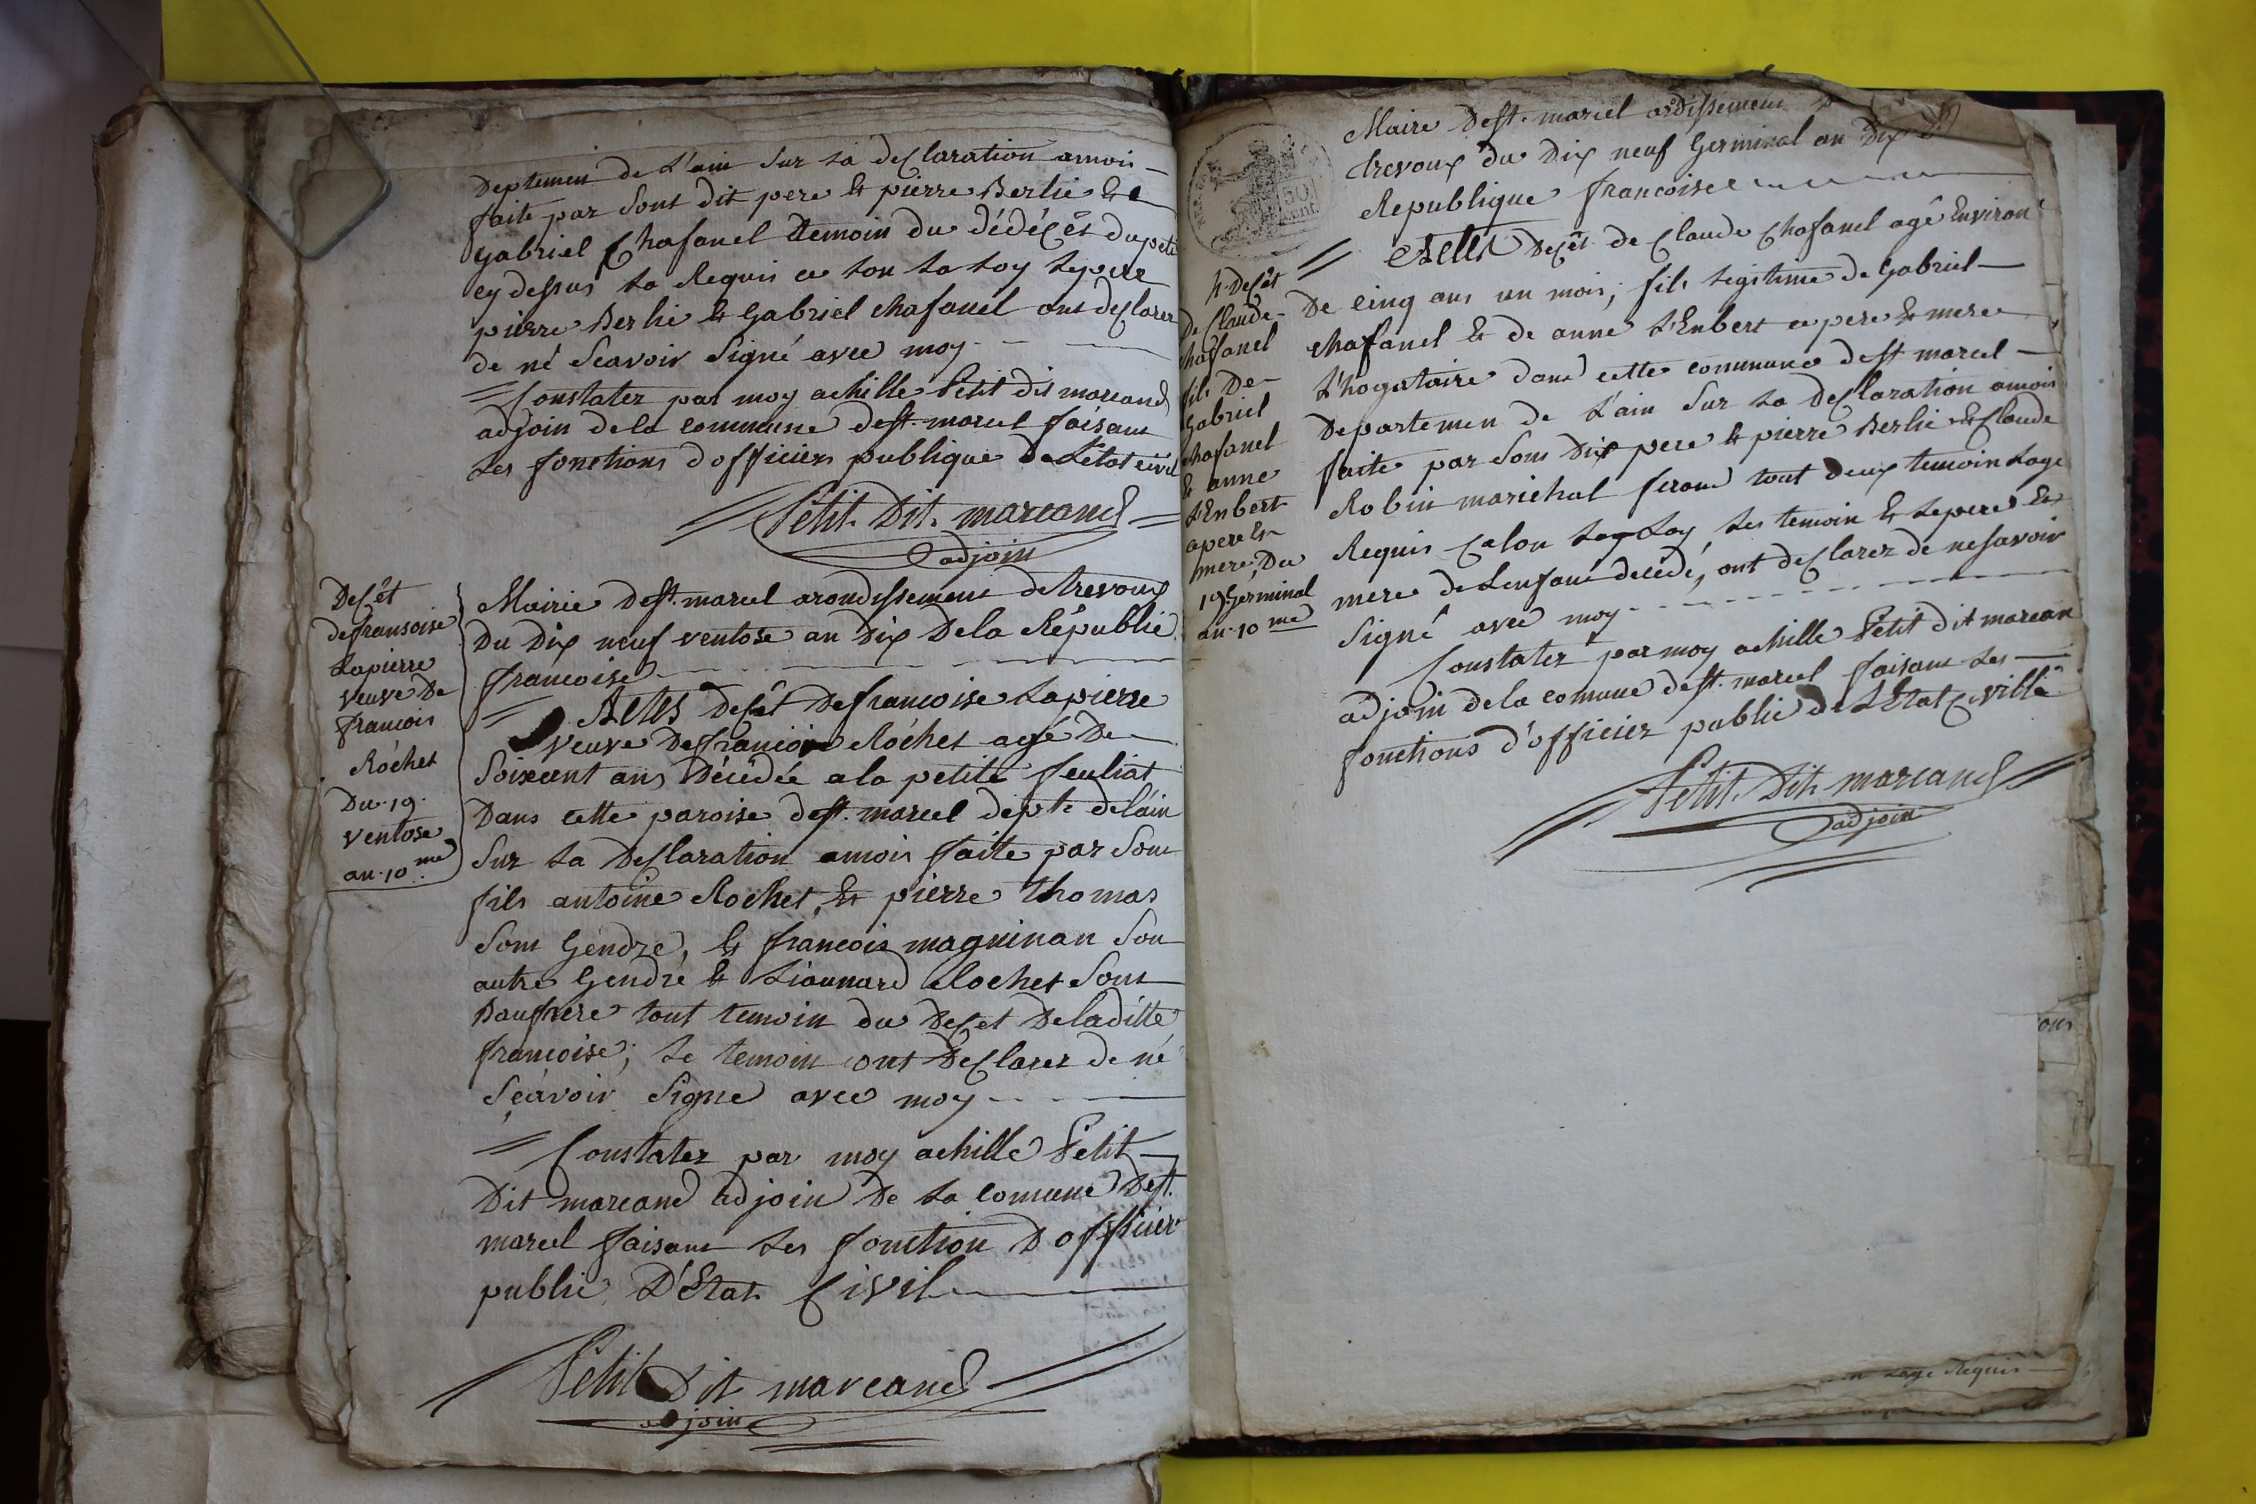 Deptemen de L'ain Sur La Declaration amoi
faite par Sont dit pere & pierre Berlie &
Gabriel Chafanel temoin du dédécês du petit
cy dessus La Requis ce lon La loy Le pere
pierre Berlie & Gabriel chafanel ont declarer
de né Scavoir Signé avec moy
Constatez par moy achille Petit dit marcand
adjoin de la commune dest. marcel faisant
Les fonctions dofficiers publique De L'état civil
Petit. Dit. marcand
adjoin
Decêt
defransoise
Lapierre
veuve De
francois
Róchet
Du. 19.
ventose
an. 10.me
Mairie dest. marcel arondissement de trevoux
Du Dix neuf ventose an Dix De la Républic
francoise
Actes Decêt De francoise Lapierre
veuve De francoi Róchet agé De
Soixent ans Décédée a la petite feuliat
Dans cette paroise dest. marcel dept. de lain
Sur La Declaration amoi faite par Sont
fils antoine Rochet, & pierre thomas
Sont Gendre, & francois maguinan Son
autre Gendre & Lionnard Rochet Sont
Baufrere tout temoin du Decet De laditte
francoise; Le temoin ont Declarer de né
Sçavoir Signe avec moy
Constatez par moy achille Petit
Dit marcand adjoin De La comune Dest.
marcel faisant Les fonction D officier
public D'Etat. Civil
Petit Dit marcand
adjoin
50
cent.
Maire Dest. marcel ardissement
trevoux du Dix neuf Germinal an Dix
Republique francoise
h. Decêt
De Claude
chafanel
fils De
Gabriel
chafanel
& anne
L'Enbert
a pere &
mere, Du
19. Germinal
an. 10 me
Actes Decêt de Claude Chafanel agé Environ
De cinq ans un mois, fils Legitime de Gabriel
chafanel & de anne L'Enbert ce pere & mere
L'hogataire dans cette commune dest marcel
Departemen de L'ain Sur La Declaration amoi
faite par Sont Dit pere & pierre Berlie & Claude
Robin marichal ferant tout deux temoin Lage
Requis Calon La Loy, Les temoin & Le pere &
mere de Lenfant decédé, ont declarer de ne savoir
Signé avec moy
Constatez par moy achille Petit dit marcan
adjoin de la comune dest. marcel faisant Les
fonctions d'officier public de L'Etat Civille
Petit. Dit. marcand
adjoin
ous
Lage Requis